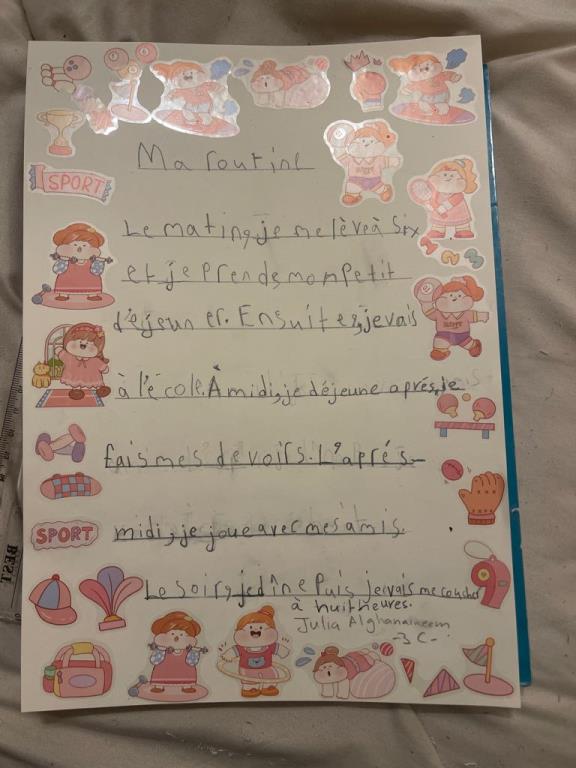 SPORT
Ma routine
Le mating, je me lève à six
et je prends mon petit
déjeuner. Ensuite, je vais
à l'école. À midi, je déjeune aprés, je
fais mes devoirs. L'aprés-
midi, je joue avec mes amis.
SPORT
Le soir, je dîne Puis je vais me coucher
à huit heures.
Julia Alghanaimeem
-3 C-
BEST